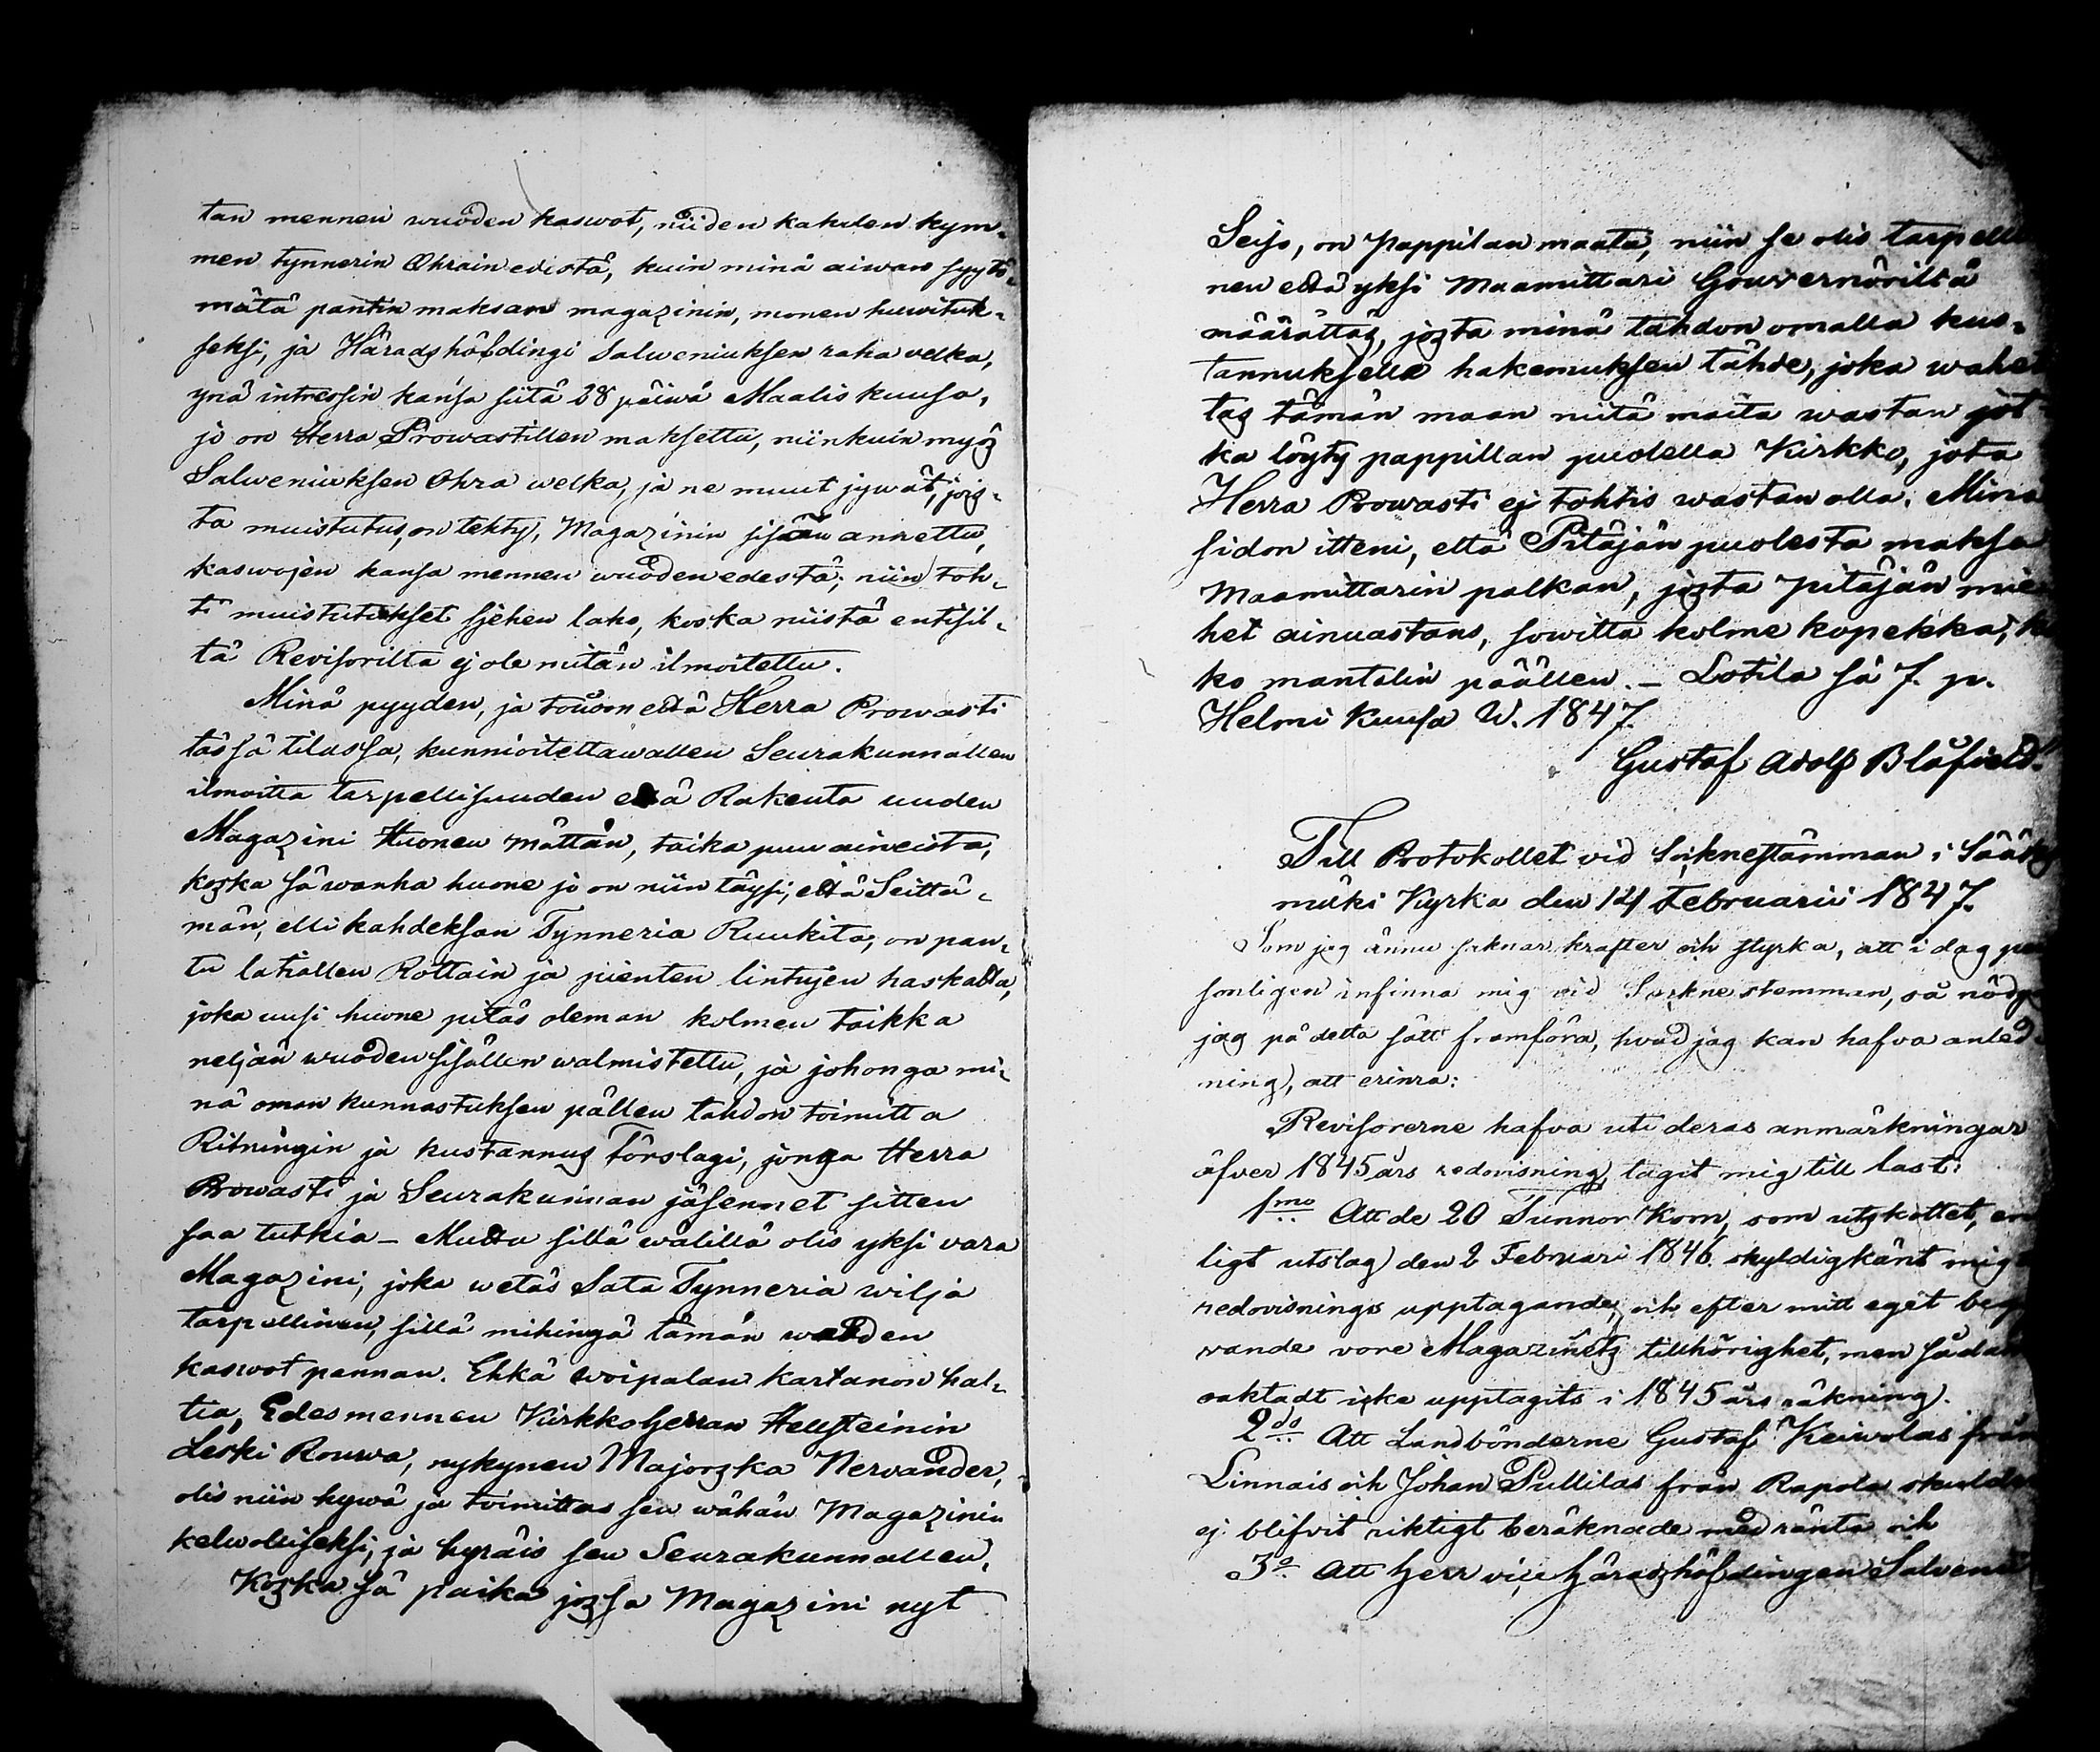 tan mennen wuoden kaswot, niiden kahden kym-
men tynnerin Ohrain edestä, kuin minä aiwan syytö-
mätä pantin maksan magazinin, monen huwituk-
seksi, ja Häradshöfdingi Salweniuksen raha velka,
ynä intressin kansa siitä 28 päiwä Maalis kuusa,
jo on Herra Prowastillen maksettu, niinkuin myös
Salweniuksen Ohra welka, ja ne muut jywät, jois-
ta muistutus, on tehty, Magazinin sisään annettu,
kaswojen kansa mennen wuoden edestä; niin toh-
ti muistutukset sjehen laho, koska niistä entisil-
tä Revisorilta ej ole mitän ilmoitettu.
Minä pyyden, ja touon että Herra Prowasti
tässä tilassa, kunnioitettawallen Seurakunnallen
ilmoitta tarpellisuuden että Rakenta uuden
Magazini Huonen mättän, taika puu aineista,
koska sä wanha huone jo on niin täysi, että Seittä-
män, elli kahdeksan Tynneria Ruukita, on pan-
tu latiallen Rottain ja pienten lintujen haskatta,
joka uusi huone pitäs oleman kolmen taikka
neljän wuoden sisällen walmistettu, ja johonga mi-
nä oman kunnastuksen pällen tahdon toimitta
Ritningin ja kustannus Förslagi, jonga Herra
Prowasti ja Seurakunnan jäsennet sitten
saa tutkia - Mutta sillä wälillä olis yksi vara
Magazini, joka wetäs Sata Tynneria wilja
tarpellinen, sillä mihingä tämän wuoden
kaswot pannan. Ehkä Woipalan kartanon hal-
tia, Edesmennen Kirkkoherran Hellsteinin
Leski Rouwa, nykynen Majorska Nervander,
olis niin hywä ja toimittas sen wähän Magazinin
kelwolliseksi, ja hyräis sen Seurakunnallen.
Koska Sä paika jossa Magazini nyt
Seiso, on Pappilan maata, niin se olis tarpelli
nen että yksi Maamittari Gouvernörilta
määrättäs, josta minä tahdon omalla kus-
tannuksella hakemuksen tähde, joka wahet
tas tämän maan niitä maita wastan jot
ka löyty pappillan puolella Kirkko, jota
Herra Prowasti ej tohtis wastan olla. Minä
sidon itteni, että Pitäjän puolesta maksa
Maamittarin palkan, josta Pitäjän mie
het ainuastans, sowitta kolme kopekka,
ko mantalin päällen. - Lotila sä 7. p.
Helmi Kuusa W. 1847.
Gustaf Adolf Blåfield."
Till Protokollet vid Soknestämman i Sääks
mäki Kyrka den 14 Februarii 1847.
Som jag ännu saknar krafter och styrka, att i dag per
sonligen infinna mig vid Sockne stemman, så nödg
jag på detta sätt framföra, hvad jag kan hafva anled-
ning, att erinra:
Revisorerne hafva uti deras anmärkningar
öfver 1845 års redovisning, tagit mig till last:
1mo Att de 20 Tunnor Korn, som utskottet, en
ligt utslag den 2 Februari 1846. skyldigkänt mig
redovisnings upptagande, och efter mitt eget beg
vande vore Magazinets tillhörighet, men sådan
oaktadt icke upptagits i 1845 års räkning.
2do Att Landbönderne Gustaf Keiwolas från
Linnais och Johan Pullilas från Rapola skulde
ej blifvit riktigt beräknade med ränta och
3o Att Herr vice Häradshöfdingen Salveni